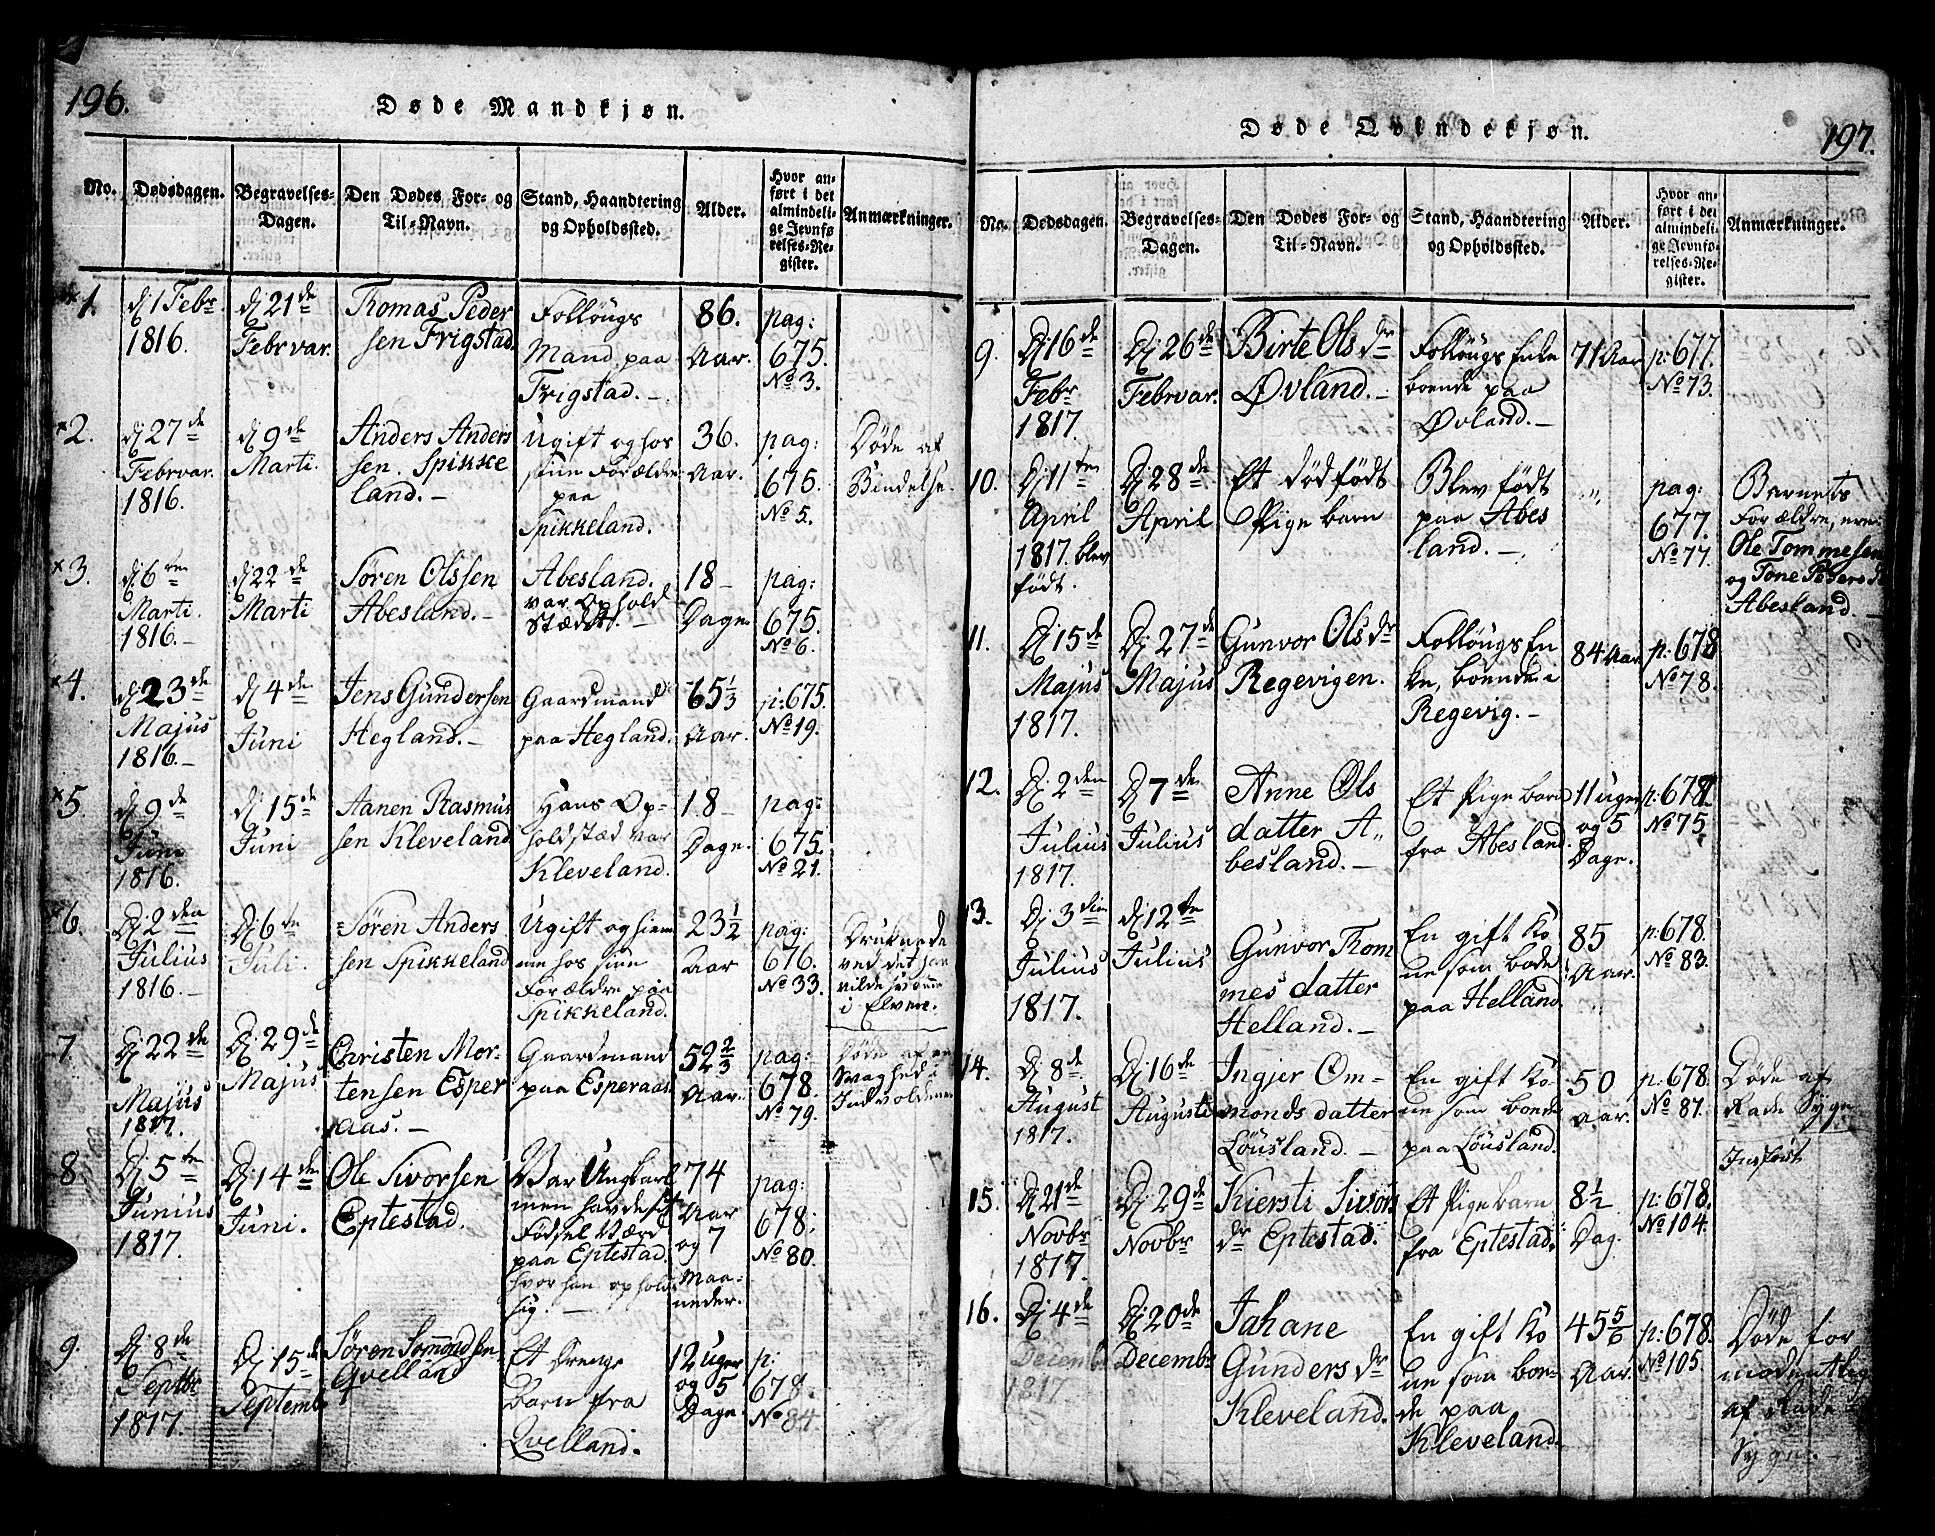 196.
Døde Mandkjøn.
No.
Dødsdagen.
Begravelses-
Dagen.
Den Dødes For- og
Til-Navn.
Stand, Haandtering
og Opholdssted.
Alder.
Hvor an-
ført i det
almindeli-
ge Jevnfø
relses-Re-
gister.
Anmærkninger.
1.
dj 1 Febr
1816.
dj 21de
Februar.
Thomas Peder
sen Frigstad.
Follöugs
Mand paa
Frigstad.
86.
Aar.
pag:
675.
No 3.
2.
dj 27de
Februar.
1816.
dj 9de
Marti.
Anders Anders
sen. Spikke
land.
Ugift og hos
siine Forældre
paa
Spikkeland.
36.
Aar.
pag:
675.
No 5.
Døde af
Bindelse.
3.
dj 6te
Marti.
1816.
dj 22de
Marti
Søren Olssen
Abesland.
Abesland.
var Ophold
Stædet.
18
Dage
pag:
675.
No 6.
4.
dj 23de
Majus
1816.
dj 4de
Juni
Jens Gundersen
Hegland.
Gaardmand
paa Hegland.
65 1/3
Aar.
p: 675.
No 19.
5.
dj 9de
Juni
1816.
dj 15de
Juni
Aanen Rasmus
sen Kleveland
Hans Op-
holdstæd var
Kleveland.
18
Dage.
pag:
675.
No 21.
6.
Dj 2den
Julius
1816.
Dj 6te
Juli.
Søren Anders
sen Spikkeland
Ugift og hiem
me hos sine
Forældre paa
Spikkeland.
23 1/2
Aar
pag:
676.
No 33.
Druknede
ved det han
vilde svømme
i Elven.
7.
Dj 22de
Majus
1817.
Dj 29de
Majus
Christen Mor-
tensen Esper
aas.
Gaardmand
paa Esperaas.
52 2/3
Aar.
pag:
678.
No 79.
Døde af en
Svaghed i
Indvoldene
8
Dj 5te
Junius
1817.
Dj 14de
Juni.
Ole Sivorsen
Eptestad.
Var Ungkarl
men havde sit
Fødsel Værd
paa Eptestad.
hvor han opholdt
sig.
74
Aar
og 7
Maa-
neder.
pag:
678.
No 80.
9.
Dj 8de
Septbr
1817.
Dj 15de
Septemb
Søren Somondsen
Qvelland
Et Drenge
Barn fra
Qvelland.
12 Uger
og 5
Dage.
p:
678.
No 84
197.
Døde Qvindekjøn.
No.
Dødsdagen.
Begravelses-
Dagen.
Den Dødes For- og
Til-Navn.
Stand, Haandtering
og Opholdssted.
Alder.
Hvor an-
ført i det
almindeli-
ge Jevnfø-
relses-Re-
gister.
Anmærkninger.
9.
Dj 16de
Febr
1817.
Dj 26de
Februar.
Birte Ols dr
Øvland.
Follöugs Enke
boende paa
Øvland.
71 Aar
p: 677.
No 73.
10.
Dj 11te
April
1817. blev
født.
Dj 28de
April
Et dødfødt
Pige barn
Blev født
paa Abes
land.
"
pag:
677.
No 77.
Barnets
Forældre, ere
Ole Tommesen
og Tone Peders dr
Abesland.
11.
Dj 15de
Majus
1817.
Dj 27de
Majus
Gunvor Ols dr
Regevigen.
Follöugs En
ke, boende i
Regevig.
84 Aar
p: 678
No 78.
12.
Dj 2den
Julius
1817.
Dj 7de
Julius
Anne Ols
datter A
besland.
Et Pige barn
fra Abesland.
11 uger
og 5
Dage.
p: 678.
No 75.
13.
Dj 3die
Julius
1817.
dj 12te
Julius
Gunvor Thom
mes datter
Helland.
En gift Ko
ne som boede
paa Helland.
85
Aar.
p: 678.
No 83.
14.
Dj 8de
August
1817.
Dj 16de
Augusti
Ingjer Om-
monds datter
Löusland.
En gift Ko
ne som boende
paa Löusland.
50
Aar.
p: 678.
No 87.
Døde af
Rade Syge
15.
Dj 21de
Novbr
1817.
Dj 29de
Novbr
Kiersti Sivors
dr Eptestad.
Et Pige barn
fra Eptestad.
8 1/2
Dag.
p: 678.
No 104.
16.
Dj 4de
Decemb
1817.
Dj 20de
Decembr
Jahane
Gunders dr
Kleveland.
En gift Ko
ne som boen-
de paa
Kleveland.
45 5/6
Aar.
p: 678.
No 105.
Døde for
modentlig
af Rade
Syge.